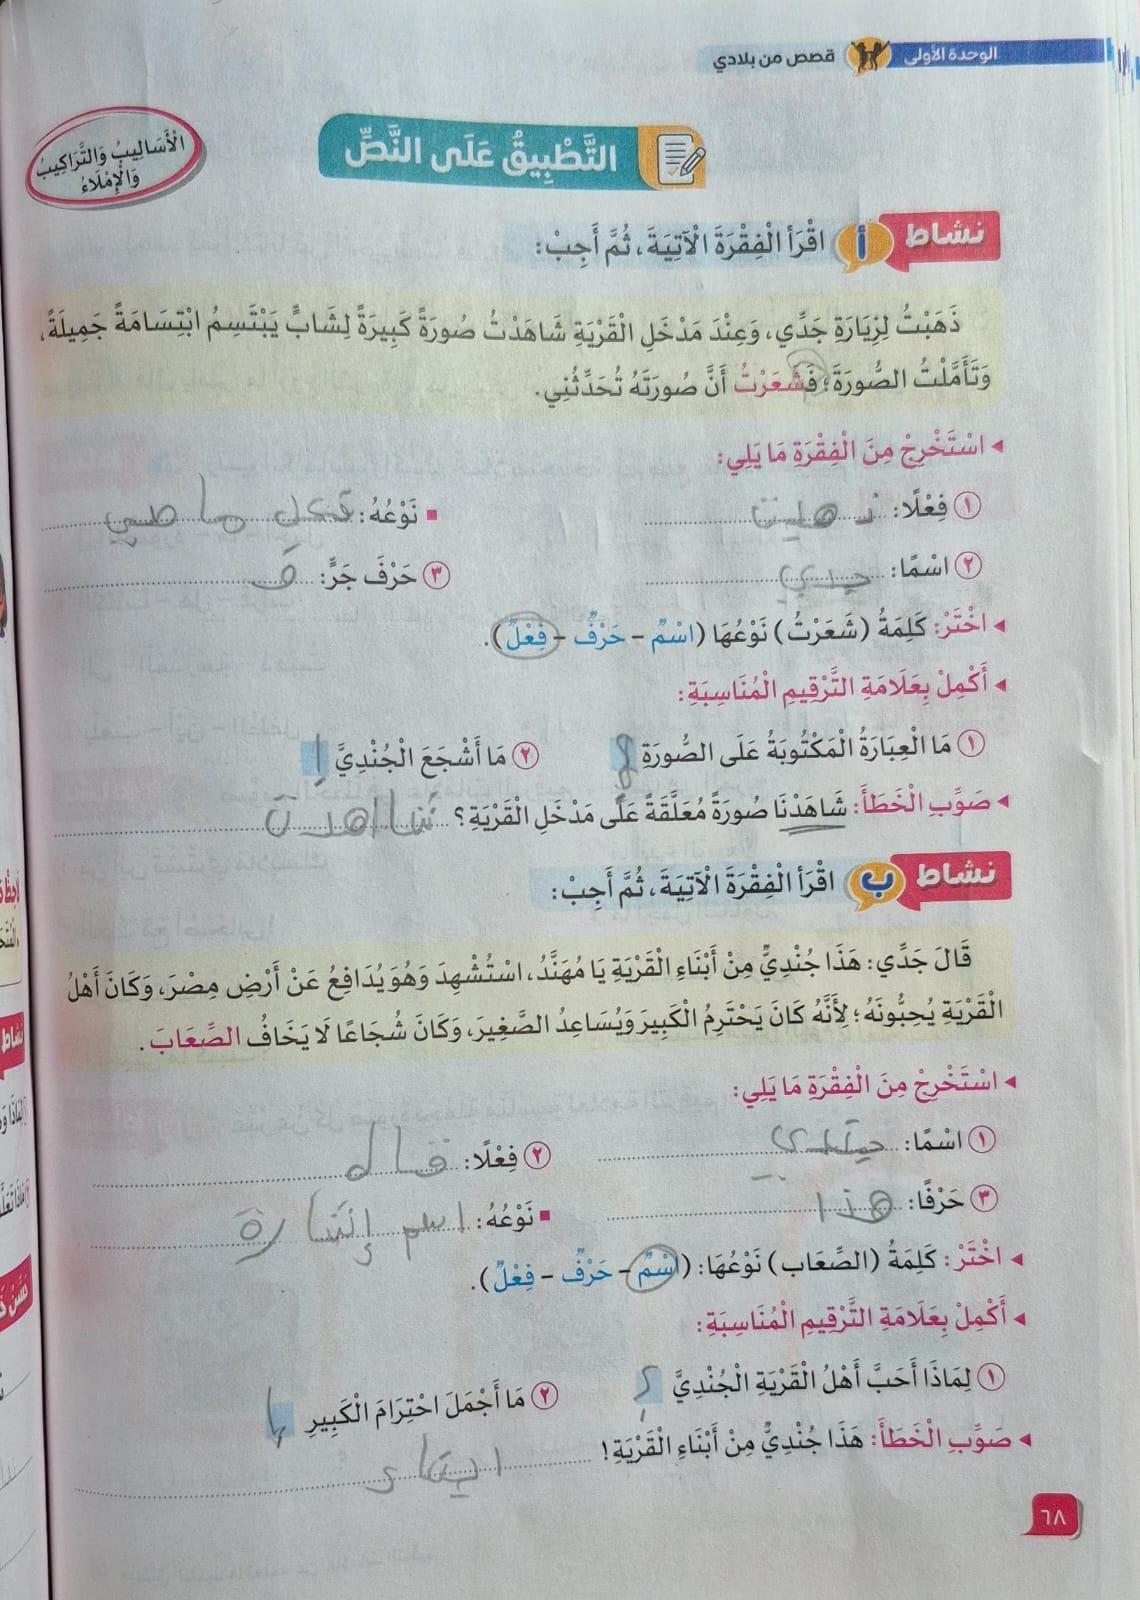 الوحدة الأولى قصص من بلادي
الْأَسَالِيبُ وَالتَّرَاكِيبُ
وَالْإِمْلَاءُ
التَّطْبِيقُ عَلَى النَّصِّ
نشاط أ اقْرَأِ الْفِقْرَةَ الْآتِيَةَ، ثُمَّ أَجِبْ:
ذَهَبْتُ لِزِيَارَةِ جَدِّي، وَعِنْدَ مَدْخَلِ الْقَرْيَةِ شَاهَدْتُ صُورَةً كَبِيرَةً لِشَابٍّ يَبْتَسِمُ ابْتِسَامَةً جَمِيلَةً،
وَتَأَمَّلْتُ الصُّورَةَ؛ فَشَعَرْتُ أَنَّ صُورَتَهُ تُحَدِّثُنِي.
اسْتَخْرِجْ مِنَ الْفِقْرَةِ مَا يَلِي:
١ فِعْلًا: ذهبت ■ نَوْعُهُ: فعل ماضي
٢ اسْمًا: جدي ٣ حَرْفَ جَرٍّ: ف
اخْتَرْ: كَلِمَةُ (شَعَرْتُ) نَوْعُهَا (اسْمٌ - حَرْفٌ - فِعْلٌ).
أَكْمِلْ بِعَلَامَةِ التَّرْقِيمِ الْمُنَاسِبَةِ:
١ مَا الْعِبَارَةُ الْمَكْتُوبَةُ عَلَى الصُّورَةِ ؟ ٢ مَا أَشْجَعَ الْجُنْدِيَّ !
صَوِّبِ الْخَطَأَ: شَاهَدْنَا صُورَةً مُعَلَّقَةً عَلَى مَدْخَلِ الْقَرْيَةِ؟
نشاط ب اقْرَأِ الْفِقْرَةَ الْآتِيَةَ، ثُمَّ أَجِبْ:
قَالَ جَدِّي: هَذَا جُنْدِيٌّ مِنْ أَبْنَاءِ الْقَرْيَةِ يَا مُهَنَّدُ، اسْتُشْهِدَ وَهُوَ يُدَافِعُ عَنْ أَرْضِ مِصْرَ، وَكَانَ أَهْلُ
الْقَرْيَةِ يُحِبُّونَهُ؛ لِأَنَّهُ كَانَ يَحْتَرِمُ الْكَبِيرَ وَيُسَاعِدُ الصَّغِيرَ، وَكَانَ شُجَاعًا لَا يَخَافُ الصِّعَابَ.
اسْتَخْرِجْ مِنَ الْفِقْرَةِ مَا يَلِي:
١ اسْمًا: ٢ فِعْلًا: قال
٣ حَرْفًا: هذا ■ نَوْعُهُ: اسم إشارة
اخْتَرْ: كَلِمَةُ (الصِّعَاب) نَوْعُهَا: (اسْمٌ - حَرْفٌ - فِعْلٌ).
أَكْمِلْ بِعَلَامَةِ التَّرْقِيمِ الْمُنَاسِبَةِ:
١ لِمَاذَا أَحَبَّ أَهْلُ الْقَرْيَةِ الْجُنْدِيَّ ؟ ٢ مَا أَجْمَلَ احْتِرَامَ الْكَبِيرِ !
صَوِّبِ الْخَطَأَ: هَذَا جُنْدِيٌّ مِنْ أَبْنَاءِ الْقَرْيَةِ!
٦٨